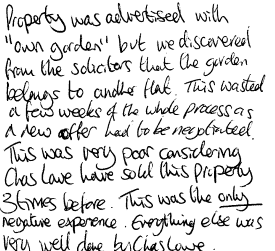 Property was advertised with
"own garden" but we discovered
from the solicitors that the garden
belongs to another flat. This wasted
a few weeks of the whole process as
a new offer had to be negotiated.
This was very poor considering
Chas Lowe have sold this property
3 times before. This was the only
negative experience. Everything else was
very well done by Chas Lowe.